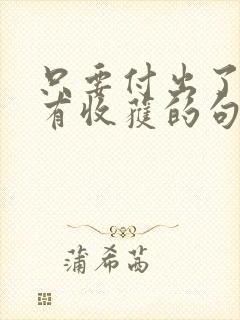 只要付出了
有收获的句
蒲希茜